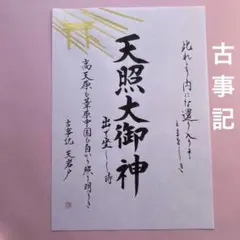 古事記
此れより内にな還り入りそ
とまをしき
天照大御神
出で坐しし時
高天原も葦原中国も自から照り明りき
古事記 天岩戸